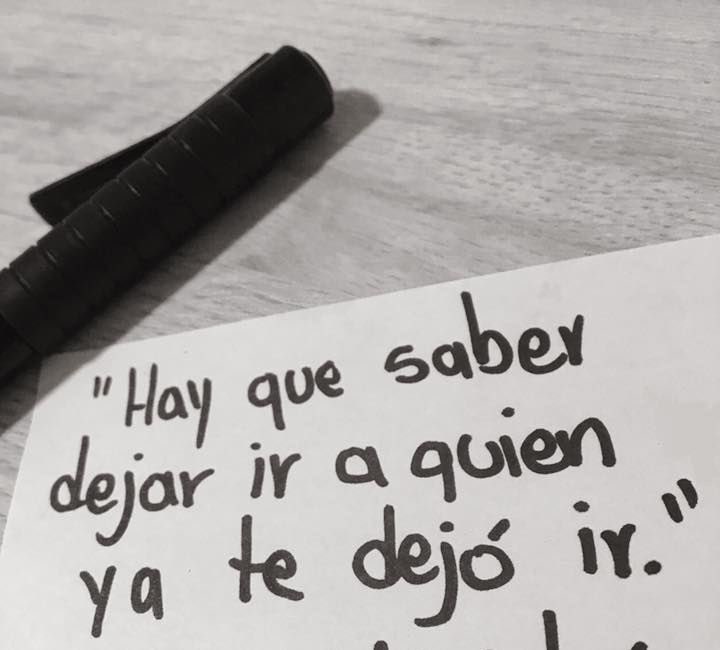 "Hay que saber
dejar ir a quien
ya te dejó ir."